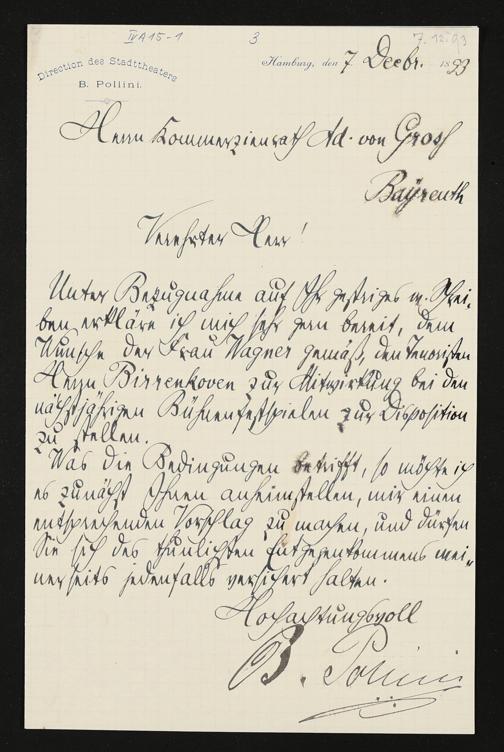 IV A 15-1
3
7.12.93
Direction des Stadttheaters
B. Pollini.
Hamburg, den 7 Decbr. 1893
Herrn Kommerzienrath Ad. von Gross
Bayreuth
Verehrter Herr!
Unter Bezugnahme auf Ihr gestriges w. Schrei-
ben erkläre ich mich sehr gern bereit, dem
Wunsche der Frau Wagner gemäß, den Tenoristen
Herrn Birrenkoven zur Mitwirkung bei den
nächstjährigen Bühnenfestspielen zur Disposition
zu stellen.
Was die Bedingungen betrifft, so möchte ich
es zunächst Ihnen anheimstellen, mir einen
entsprechenden Vorschlag zu machen, und dürfen
Sie sich des thunlichsten Entgegenkommens mei-
nerseits jedenfalls versichert halten.
Hochachtungsvoll
B. Pollini